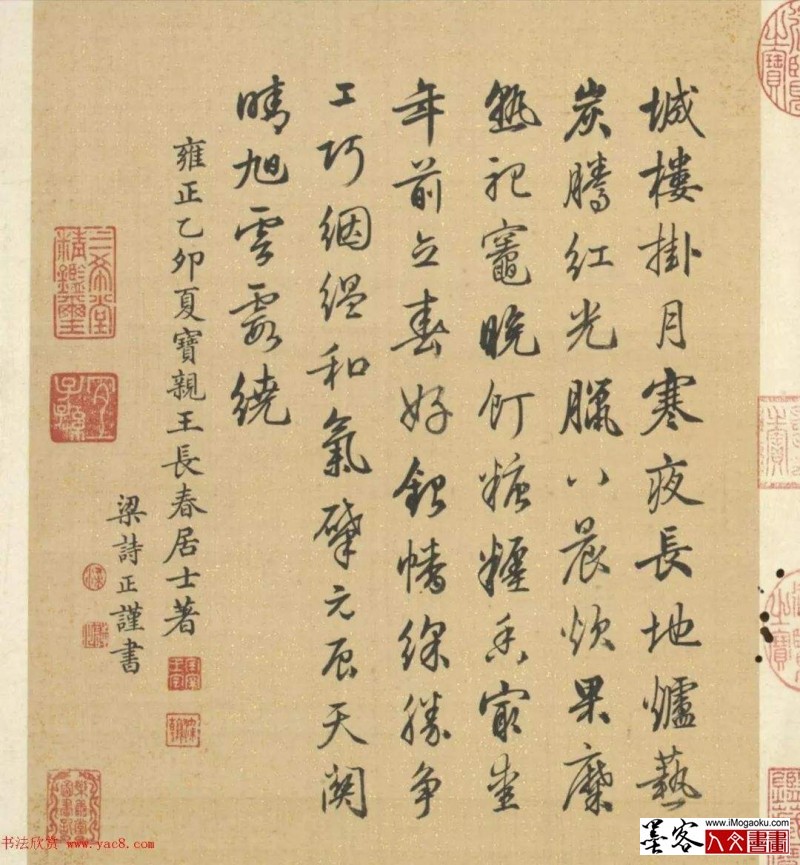 城樓掛月寒夜長地爐爇
炭騰紅光臘八晨炊果糜
熟祀竈晚飣糖糧香最喜
年前立春好銀幡綵勝争
工巧絪縕和氣肇元辰天闕
晴旭雲霞繞
雍正乙卯夏寶親王長春居士著
梁詩正謹書
三希堂精鑑璽
宜子孫
书法欣赏 www.yac8.com
墨客 www.iMogaoku.com
人文書畫